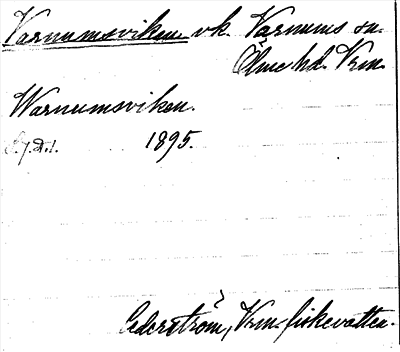 Varnumsviken vk. Varnums sn.
Ölme hd. Vrm.
Warnumsviken.
1895.
Cederström, Vrm. fiskevatten.